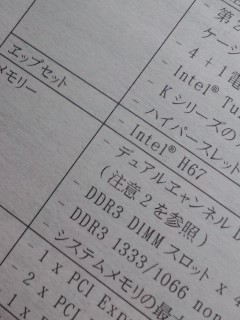 - 第2
ケーシ
- 4 + 1電
- Intel® Tu
- Kシリーズの
- ハイパースレット
エップセット
- Intel® H67
メモリー
- デュアルエャンネル D
(注意2を参照)
- DDR3 DIMM スロット x 4
- DDR3 1333/1066 non
- システムメモリの最大
- 1 x PCI Exp
- 2 x PCI
- 1 x P